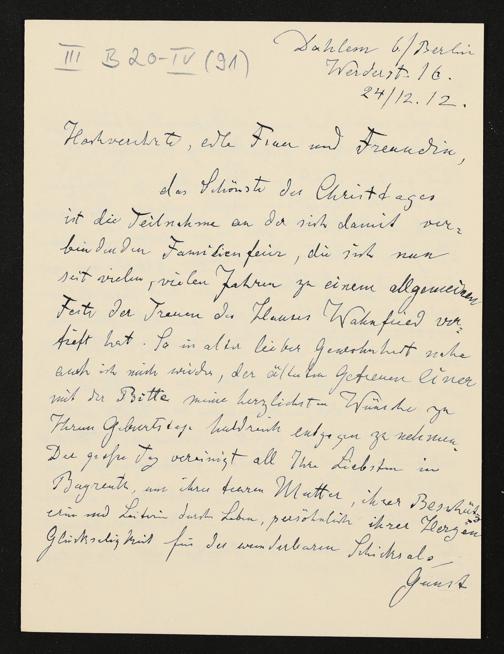 III B 20-IV (91)
Dahlem b/Berlin
Werderst. 16.
24/12.12.
Hochverehrte, edle Frau und Freundin,
das Schönste des Christtages
ist die Teilnahme an der sich damit ver=
bindenden Familienfeier, die sich nun
seit vielen, vielen Jahren zu einem allgemeinen
Feste der Treuen des Hauses Wahnfried ver=
tieft hat. So in alter lieber Gewohnheit nahe
auch ich mich wieder, der ältesten Getreuen Einer
mit der Bitte meine herzlichsten Wünsche zu
Ihrem Geburtstage huldreich entgegen zu nehmen.
Der große Tag vereinigt all Ihre Liebsten in
Bayreuth, um ihre teuren Mutter, ihrer Beschütz
erin und Leiterin durchs Leben, persönlich ihrer Herzen
Glückseligkeit für des wunderbaren Schicksals
Gunst